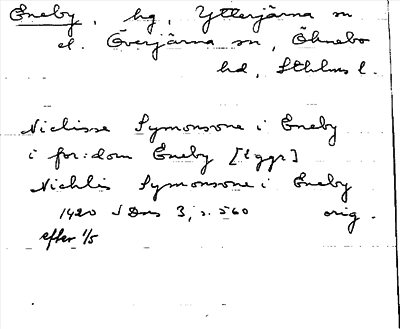 Eneby, hg, Ytterjärna sn
el. Överjärna sn, Öknebo
hd, Sthlms l.
Niclisse Symonsone i Eneby
i for:dom Eneby [2 ggr]
Nichlis Symonsone i Eneby
1420 SDns 3, s. 560 orig.
efter 1/5